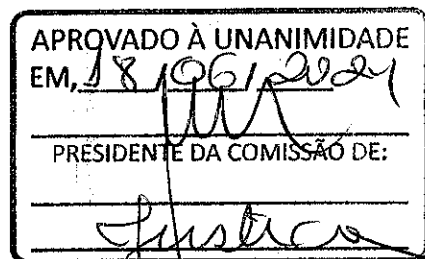 APROVADO À UNANIMIDADE
EM, 18/06/2024
PRESIDENTE DA COMISSÃO DE:
Justiça